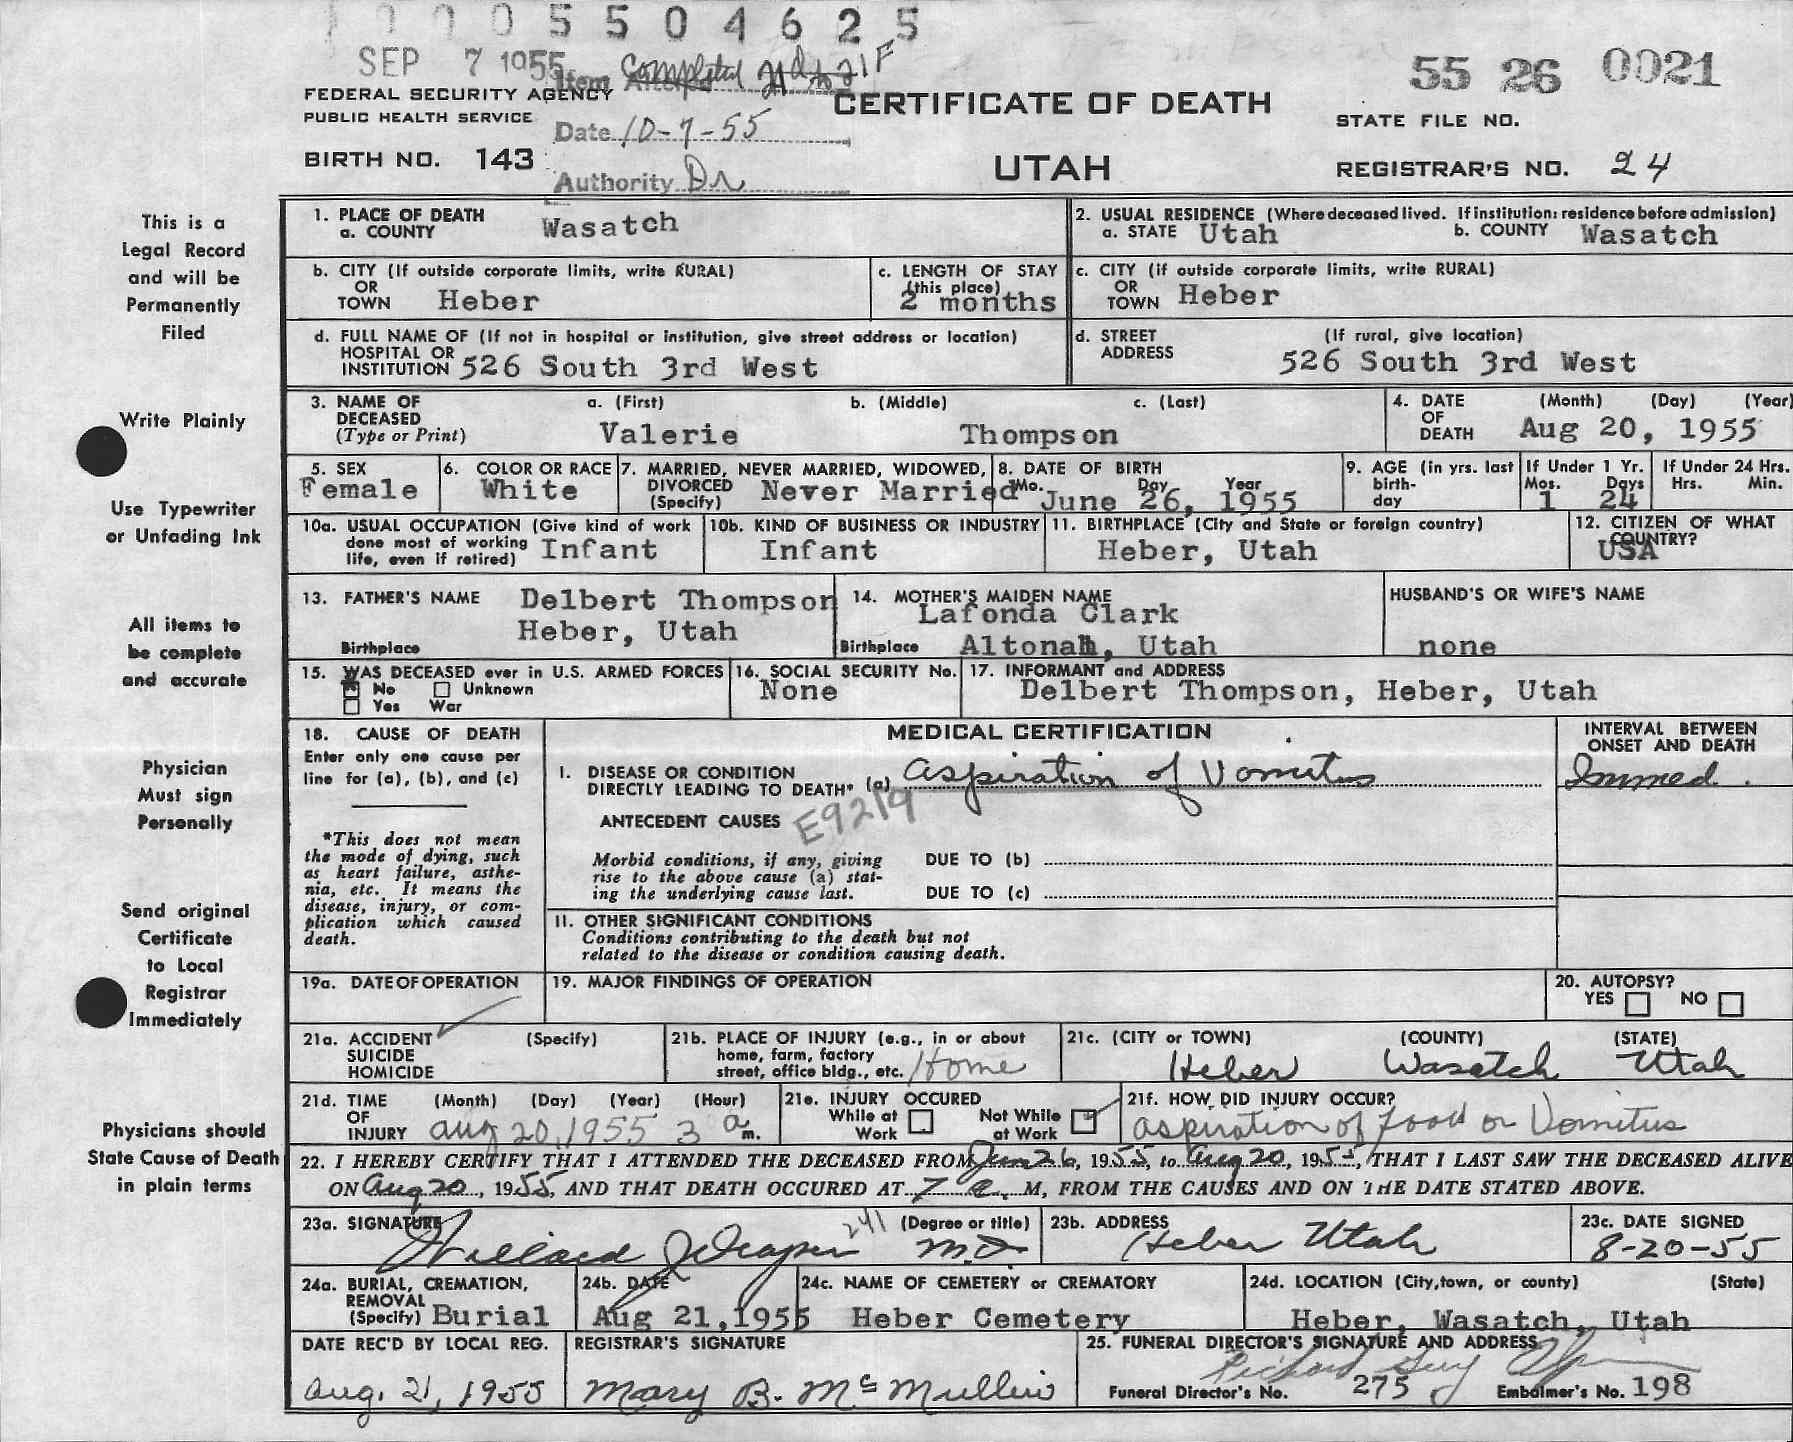 0005504625
SEP 7 1955 Item Completed 21d to 21F
55 26 0021
FEDERAL SECURITY AGENCY
PUBLIC HEALTH SERVICE
CERTIFICATE OF DEATH
STATE FILE NO.
Date 10-7-55
BIRTH NO. 143
UTAH
REGISTRAR'S NO. 24
Authority Dr
This is a
Legal Record
and will be
Permanently
Filed
Write Plainly
Use Typewriter
or Unfading Ink
All items to
be complete
and accurate
Physician
Must sign
Personally
Send original
Certificate
to Local
Registrar
Immediately
Physicians should
State Cause of Death
in plain terms
1. PLACE OF DEATH
a. COUNTY Wasatch
2. USUAL RESIDENCE (Where deceased lived. If institution: residence before admission)
a. STATE Utah b. COUNTY Wasatch
b. CITY (If outside corporate limits, write RURAL)
OR
TOWN Heber
c. LENGTH OF STAY
(this place)
2 months
c. CITY (if outside corporate limits, write RURAL)
OR
TOWN Heber
d. FULL NAME OF (If not in hospital or institution, give street address or location)
HOSPITAL OR
INSTITUTION 526 South 3rd West
d. STREET (If rural, give location)
ADDRESS 526 South 3rd West
3. NAME OF a. (First) b. (Middle) c. (Last)
DECEASED
(Type or Print) Valerie Thompson
4. DATE (Month) (Day) (Year)
OF
DEATH Aug 20, 1955
5. SEX
Female
6. COLOR OR RACE
White
7. MARRIED, NEVER MARRIED, WIDOWED,
DIVORCED
(Specify) Never Married
8. DATE OF BIRTH
Mo. Day Year
June 26, 1955
9. AGE (in yrs. last
birth-
day
If Under 1 Yr.
Mos. Days
1 24
If Under 24 Hrs.
Hrs. Min.
10a. USUAL OCCUPATION (Give kind of work
done most of working
life, even if retired) Infant
10b. KIND OF BUSINESS OR INDUSTRY
Infant
11. BIRTHPLACE (City and State or foreign country)
Heber, Utah
12. CITIZEN OF WHAT
COUNTRY?
USA
13. FATHER'S NAME Delbert Thompson
Birthplace Heber, Utah
14. MOTHER'S MAIDEN NAME
Lafonda Clark
Birthplace Altonah, Utah
HUSBAND'S OR WIFE'S NAME
none
15. WAS DECEASED ever in U.S. ARMED FORCES
No Unknown
Yes War
16. SOCIAL SECURITY No.
None
17. INFORMANT and ADDRESS
Delbert Thompson, Heber, Utah
18. CAUSE OF DEATH
Enter only one cause per
line for (a), (b), and (c)
*This does not mean
the mode of dying, such
as heart failure, asthe-
nia, etc. It means the
disease, injury, or com-
plication which caused
death.
MEDICAL CERTIFICATION
INTERVAL BETWEEN
ONSET AND DEATH
I. DISEASE OR CONDITION
DIRECTLY LEADING TO DEATH* (a) Aspiration of Vomitus Immed.
ANTECEDENT CAUSES E9219
Morbid conditions, if any, giving
rise to the above cause (a) stat-
ing the underlying cause last.
DUE TO (b)
DUE TO (c)
II. OTHER SIGNIFICANT CONDITIONS
Conditions contributing to the death but not
related to the disease or condition causing death.
19a. DATE OF OPERATION
19. MAJOR FINDINGS OF OPERATION
20. AUTOPSY?
YES NO
21a. ACCIDENT (Specify)
SUICIDE
HOMICIDE
21b. PLACE OF INJURY (e.g., in or about
home, farm, factory
street, office bldg., etc. Home
21c. (CITY or TOWN) (COUNTY) (STATE)
Heber Wasatch Utah
21d. TIME (Month) (Day) (Year) (Hour)
OF
INJURY Aug 20, 1955 3 a m.
21e. INJURY OCCURED
While at Work Not While at Work
21f. HOW DID INJURY OCCUR?
Aspiration of food or Vomitus
22. I HEREBY CERTIFY THAT I ATTENDED THE DECEASED FROM Jun 26, 1955, to Aug 20, 1955, THAT I LAST SAW THE DECEASED ALIVE
ON Aug 20, 1955, AND THAT DEATH OCCURED AT 7 a. M, FROM THE CAUSES AND ON THE DATE STATED ABOVE.
23a. SIGNATURE 241 (Degree or title)
Willard Draper M.D
23b. ADDRESS
Heber Utah
23c. DATE SIGNED
8-20-55
24a. BURIAL, CREMATION,
REMOVAL
(Specify) Burial
24b. DATE
Aug 21, 1955
24c. NAME OF CEMETERY or CREMATORY
Heber Cemetery
24d. LOCATION (City, town, or county) (State)
Heber, Wasatch, Utah
DATE REC'D BY LOCAL REG.
Aug. 21, 1955
REGISTRAR'S SIGNATURE
Mary B. McMullin
25. FUNERAL DIRECTOR'S SIGNATURE AND ADDRESS
Richard
Funeral Director's No. 275 Embalmer's No. 198